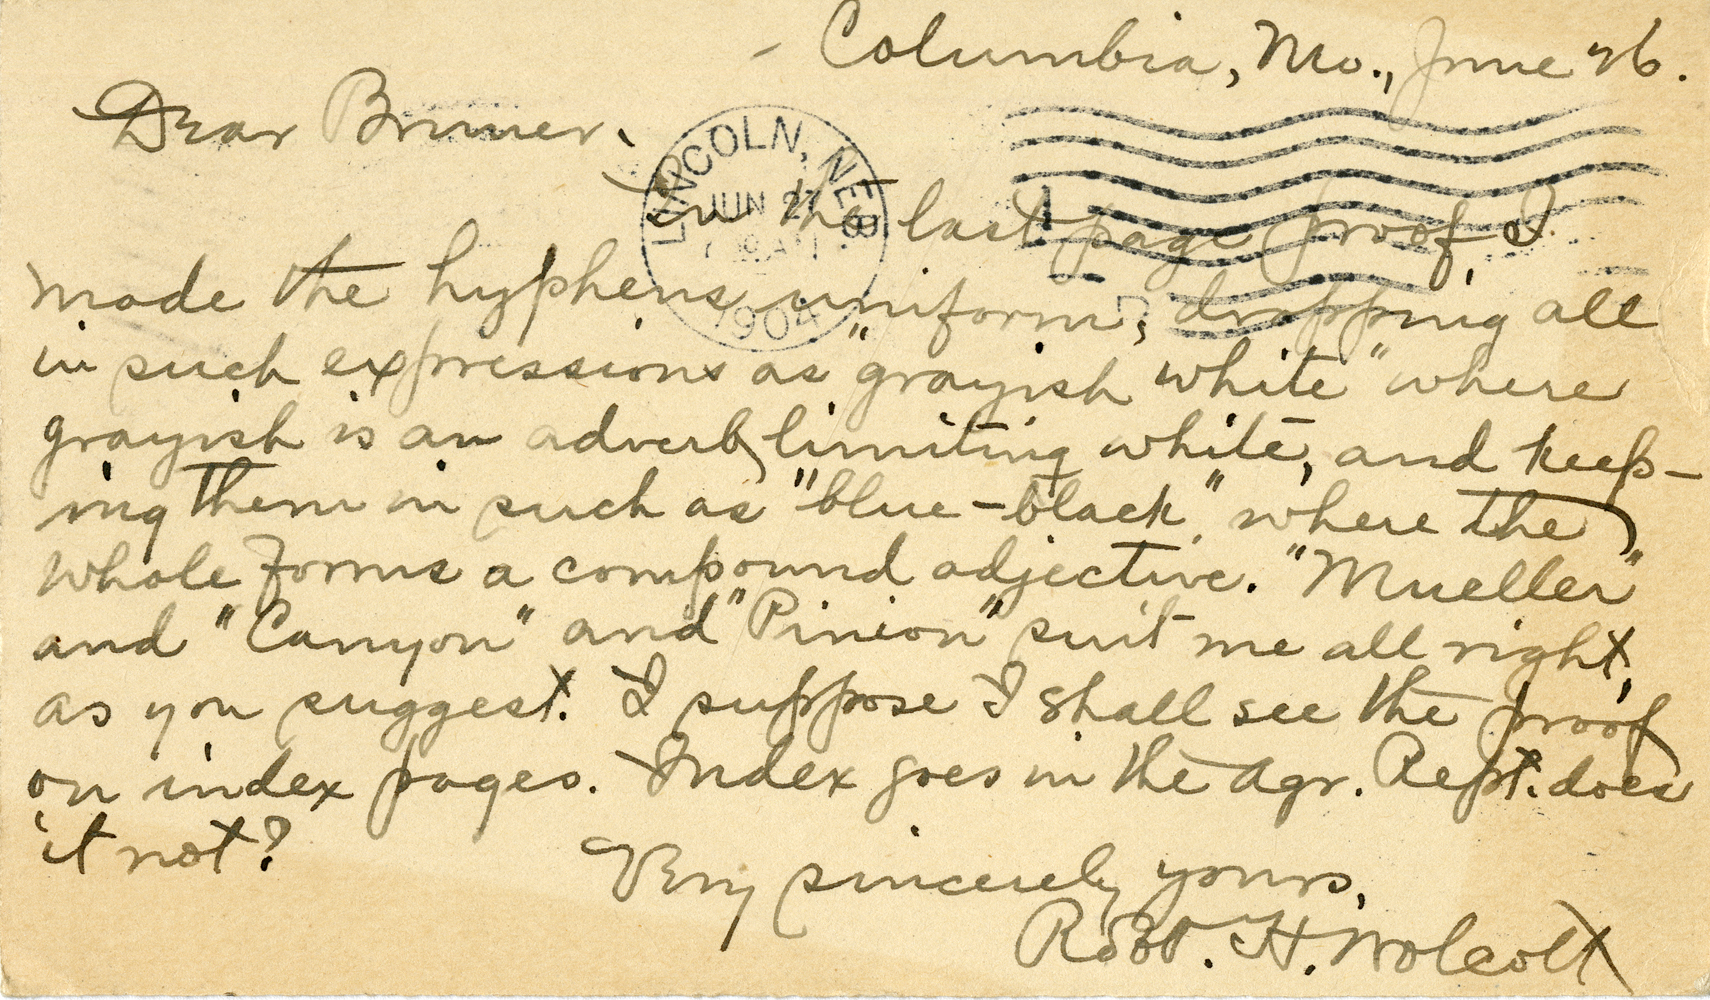 Columbia, Mo., June 26.
Dear Bruner,
LINCOLN, NEB.
JUN 27
1904
In the last page proof I
made the hyphens uniform, dropping all
in such expressions as "grayish white" where
grayish is an adverb limiting white, and keep-
ing them in such as "blue-black" where the
whole forms a compound adjective. "Mueller"
and "Canyon" and "Pinion" suit me all right,
as you suggest. I suppose I shall see the proof
on index pages. Index goes in the Agr. Rept. does
it not?
Very sincerely yours,
Robt. H. Wolcott